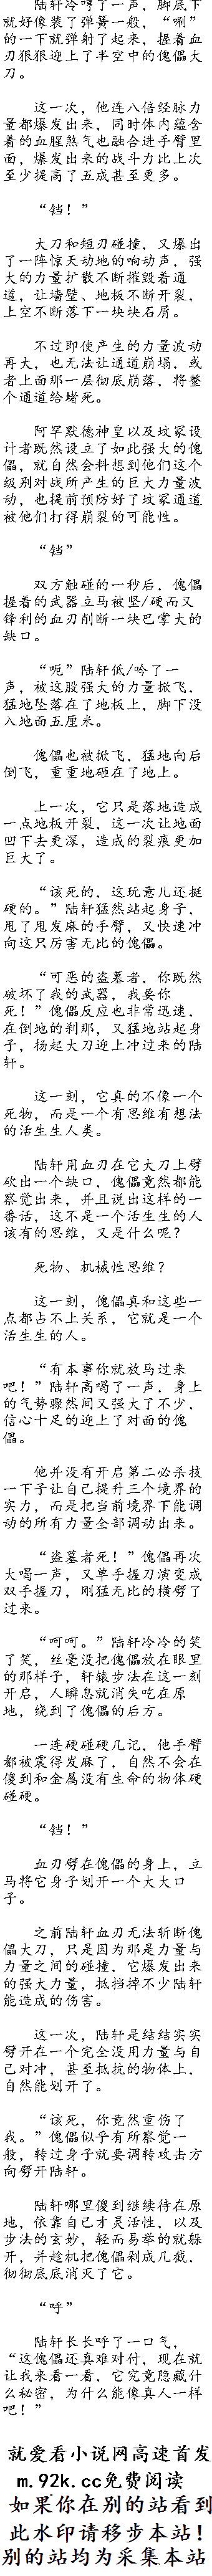 陆轩冷哼了一声，脚底下
就好像装了弹簧一般，“唰”
的一下就弹射了起来，握着血
刃狠狠迎上了半空中的傀儡大
刀。
这一次，他连八倍经脉力
量都爆发出来，同时体内蕴含
着的血腥煞气也融合进手臂里
面，爆发出来的战斗力比上次
至少提高了五成甚至更多。
“铛！”
大刀和短刃碰撞，又爆出
了一阵惊天动地的响动声，强
大的力量扩散不断摧毁着通
道，让墙壁、地板不断开裂，
上空不断落下一块块石屑。
不过即使产生的力量波动
再大，也无法让通道崩塌，或
者上面那一层彻底崩落，将整
个通道给堵死。
阿罕默德神皇以及坟冢设
计者既然设立了如此强大的傀
儡，就自然会料想到他们这个
级别对战所产生的巨大力量波
动，也提前预防好了坟冢通道
被他们打得崩裂的可能性。
“铛”
双方触碰的一秒后，傀儡
握着的武器立马被坚/硬而又
锋利的血刃削断一块巴掌大的
缺口。
“呃”陆轩低/吟了一
声，被这股强大的力量掀飞，
猛地坠落在了地板上，脚下没
入地面五厘米。
傀儡也被掀飞，猛地向后
倒飞，重重地砸在了地上。
上一次，它只是落地造成
一点地板开裂，这一次让地面
凹下去更深，造成的裂痕更加
巨大了。
“该死的，这玩意儿还挺
硬的。”陆轩猛然站起身子，
甩了甩发麻的手臂，又快速冲
向这只厉害无比的傀儡。
“可恶的盗墓者，你既然
破坏了我的武器，我要你
死！”傀儡反应也非常迅速，
在倒地的刹那，又猛地站起身
子，扬起大刀迎上冲过来的陆
轩。
这一刻，它真的不像一个
死物，而是一个有思维有想法
的活生生人类。
陆轩用血刃在它大刀上劈
砍出一个缺口，傀儡竟然都能
察觉出来，并且说出这样的一
番话，这不是一个活生生的人
该有的思维，又是什么呢？
死物、机械性思维？
这一刻，傀儡真和这些一
点都占不上关系，它就是一个
活生生的人。
“有本事你就放马过来
吧！”陆轩高喝了一声，身上
的气势骤然间又强大了不少，
信心十足的迎上了对面的傀
儡。
他并没有开启第二必杀技
一下子让自己提升三个境界的
实力，而是把当前境界下能调
动的所有力量全部调动出来。
“盗墓者死！”傀儡再次
大喝一声，又单手握刀演变成
双手握刀，刚猛无比的横劈了
过来。
“呵呵。”陆轩冷冷的笑
了笑，丝毫没把傀儡放在眼里
的那样子，轩辕步法在这一刻
开启，人瞬息就消失吃在原
地，绕到了傀儡的后方。
一连硬碰硬几记，他手臂
都被震得发麻了，自然不会在
傻到和金属没有生命的物体硬
碰硬。
“铛！”
血刃劈在傀儡的身上，立
马将它身子划开一个大大口
子。
之前陆轩血刃无法斩断傀
儡大刀，只是因为那是力量与
力量之间的碰撞，它爆发出来
的强大力量，抵挡掉不少陆轩
能造成的伤害。
这一次，陆轩是结结实实
劈开在一个完全没用力量与自
己对冲，甚至抵抗的物体上，
自然能划开了。
“该死，你竟然重伤了
我。”傀儡似乎有所察觉一
般，转过身子就要调转攻击方
向劈开陆轩。
陆轩哪里傻到继续待在原
地，依靠自己才灵活性，以及
步法的玄妙，轻而易举的就躲
开，并趁机把傀儡剁成几截，
彻彻底底消灭了它。
“呼”
陆轩长长呼了一口气，
“这傀儡还真难对付，现在就
让我来看一看，它究竟隐藏什
么秘密，为什么能像真人一样
吧！”
就爱看小说网高速首发
m.92k.cc免费阅读
如果你在别的站看到
此水印请移步本站！
别的站均为采集本站